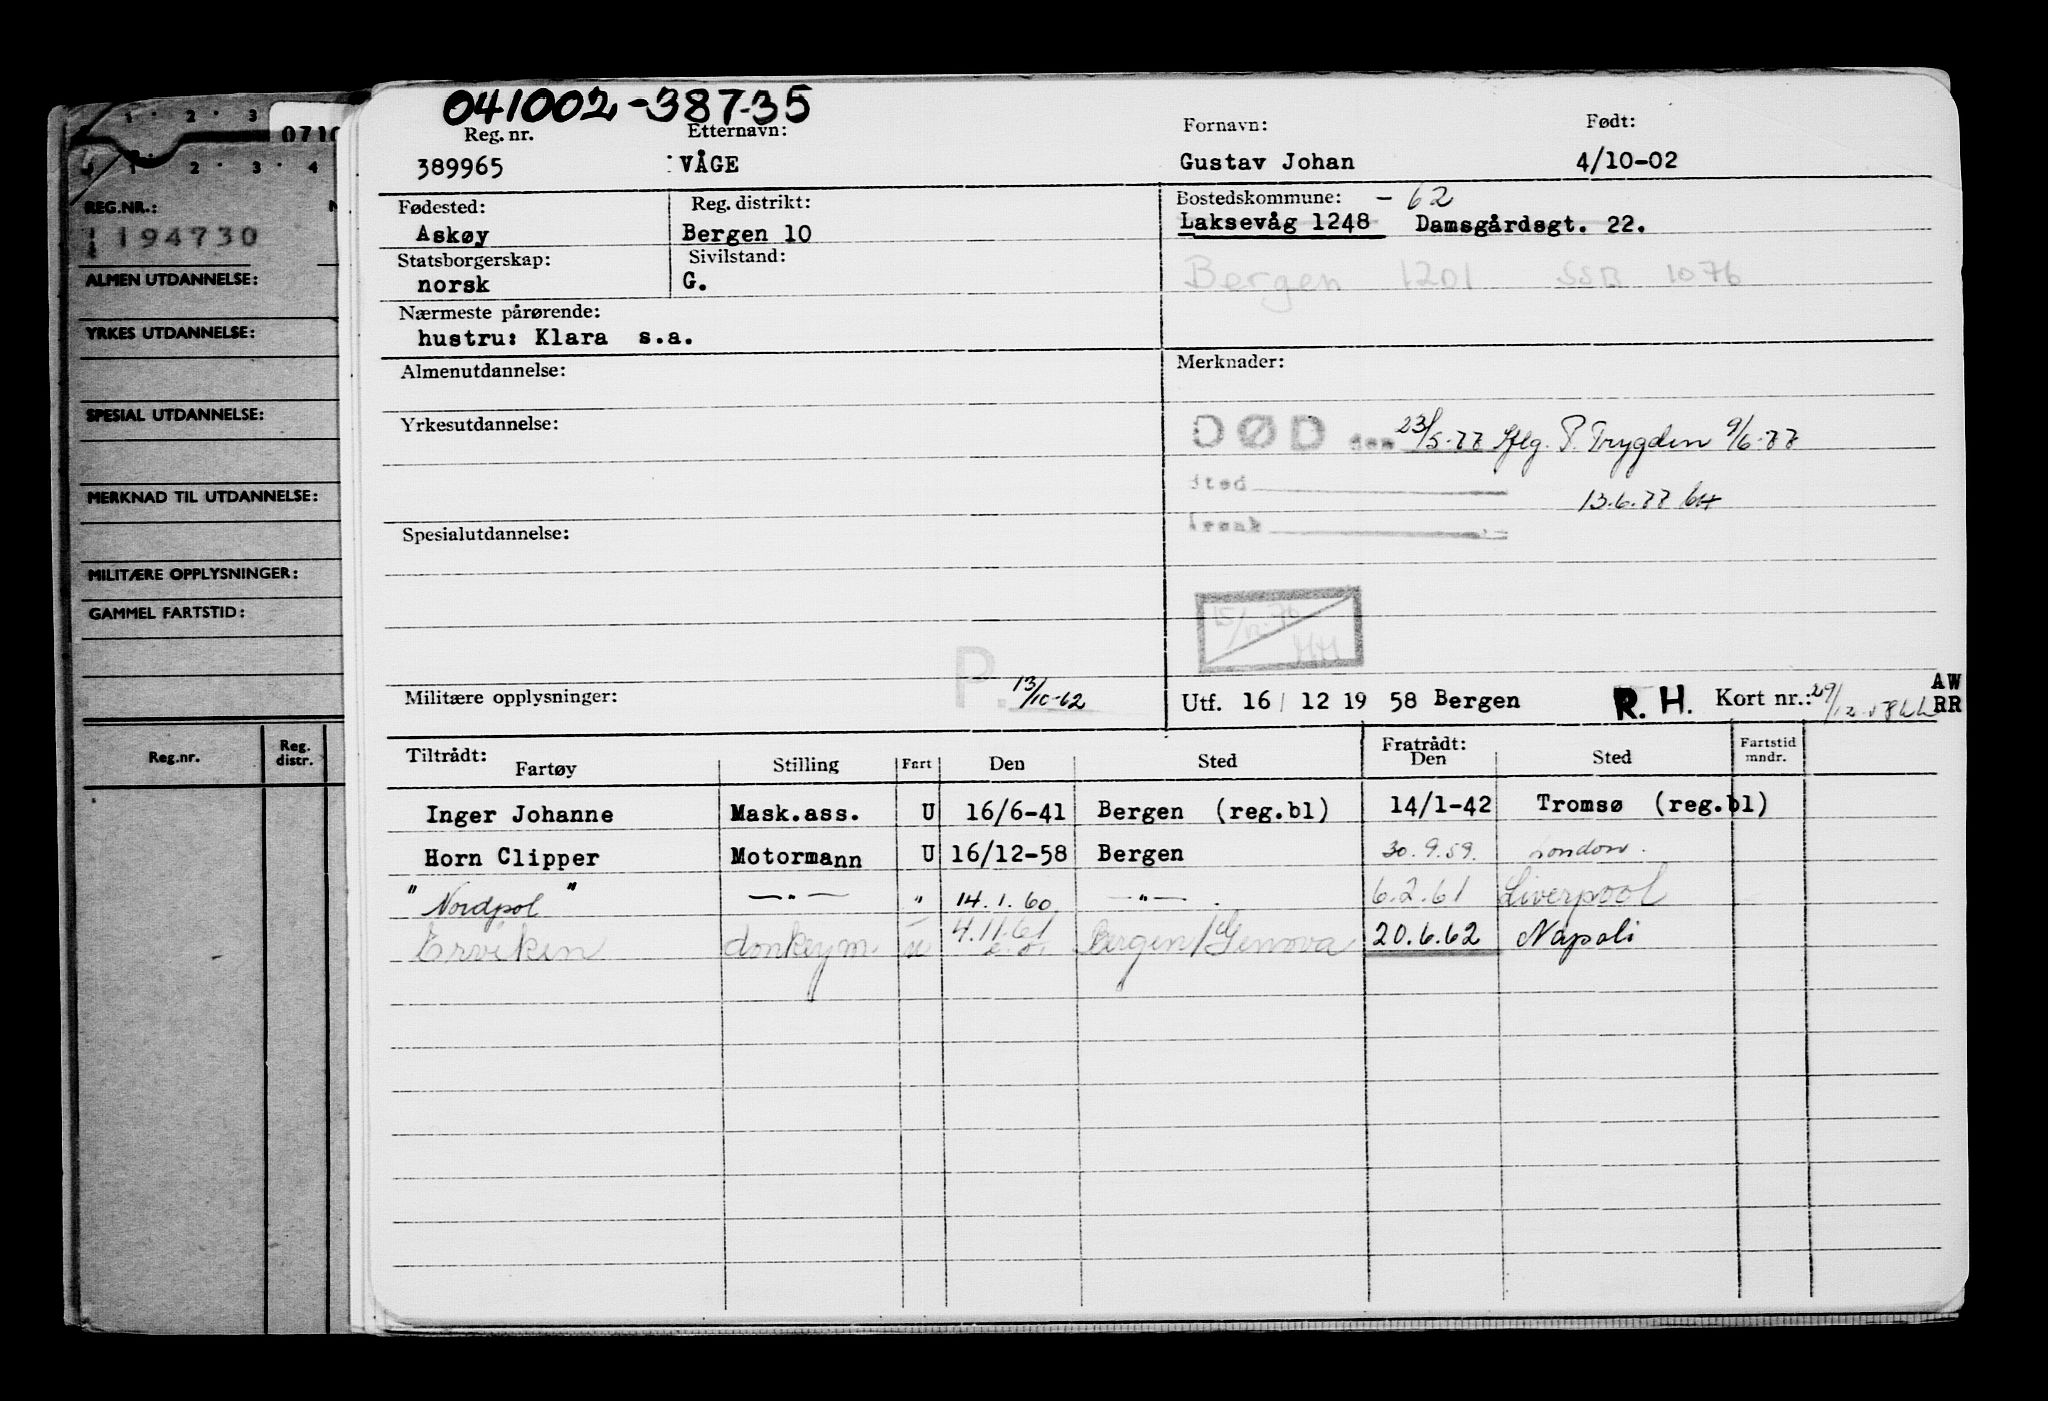 041002-38735
Reg. nr. Etternavn: Fornavn: Født:
389965 VÅGE Gustav Johan 4/10-02
Fødested: Reg. distrikt: Bostedskommune: - 62
Askøy Bergen 10 Laksevåg 1248 Damsgårdsgt. 22.
Statsborgerskap: Sivilstand:
norsk G. Bergen 1201 SSB 1076
Nærmeste pårørende:
hustru: Klara s.a.
Almenutdannelse: Merknader:
Yrkesutdannelse: DØD den 23/5-77 Iflg. P. Trygden 9/6-77
sted 13.6.77
Spesialutdannelse:
P. 13/10-62
Militære opplysninger: Utf. 16/ 12 19 58 Bergen R. H. Kort nr.: 29/12-58 LL AW
RR
Tiltrådt: Fratrådt:
Fartøy Stilling Fart Den Sted Den Sted Fartstid mndr.
Inger Johanne Mask.ass. U 16/6-41 Bergen (reg.bl) 14/1-42 Tromsø (reg.bl)
Horn Clipper Motormann U 16/12-58 Bergen 30.9.59. London.
"Nordpol" —"— " 14.1.60 —"— . 6.2.61 Liverpool
Erviken donkeym. u 4.11.61 Bergen/Genova 20.6.62 Napoli
1 2 3
0710
1 2 3 4
REG.NR.: N
194730
ALMEN UTDANNELSE:
YRKES UTDANNELSE:
SPESIAL UTDANNELSE:
MERKNAD TIL UTDANNELSE:
MILITÆRE OPPLYSNINGER:
GAMMEL FARTSTID:
Reg.nr. Reg. distr.